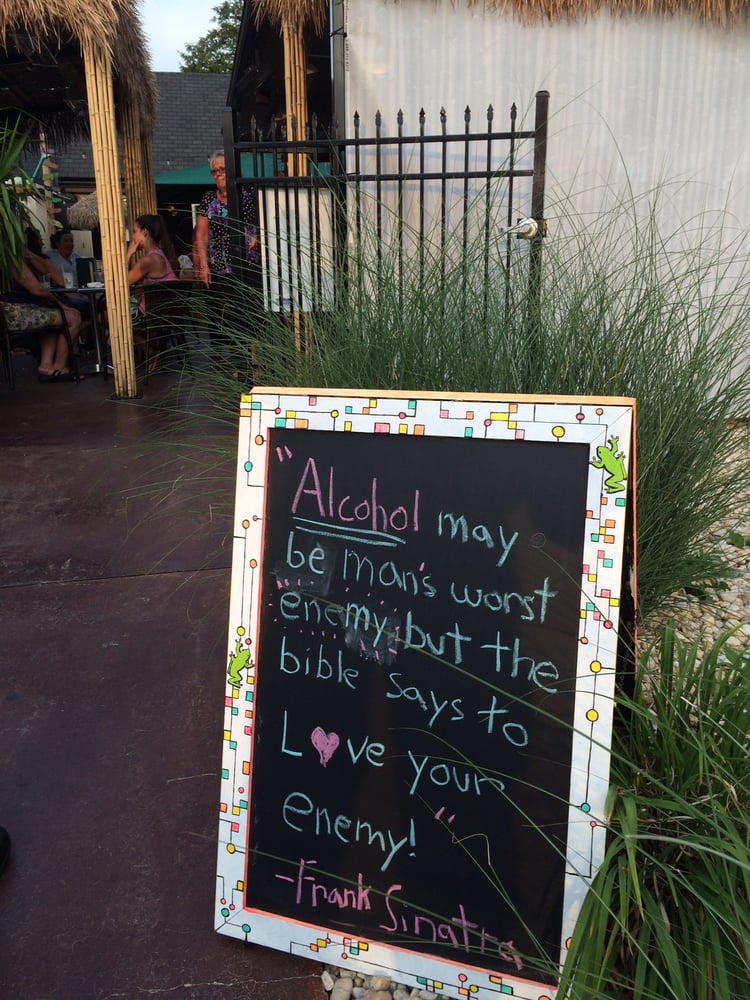 "Alcohol may
be man's worst
enemy, but the
bible says to
Love your
enemy!"
-Frank Sinatra